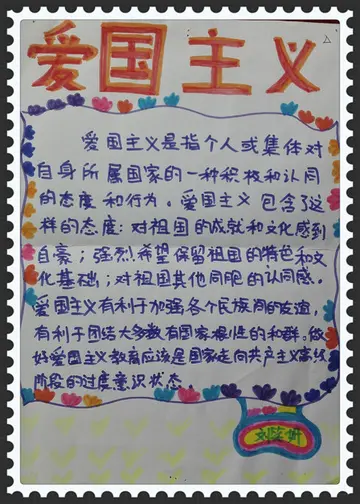 爱国主义
爱国主义是指个人或集体对
自身所属国家的一种积极和认同
的态度和行为。爱国主义包含了这
样的态度:对祖国的成就和文化感到
自豪;强烈希望保留祖国的特色和文
化基础;对祖国其他同胞的认同感。
爱国主义有利于加强各个民族间的友谊,
有利于团结大多数有国家根性的和群。做
好爱国主义教育应该是国家走向共产主义高级
阶段的过度意识状态。
刘